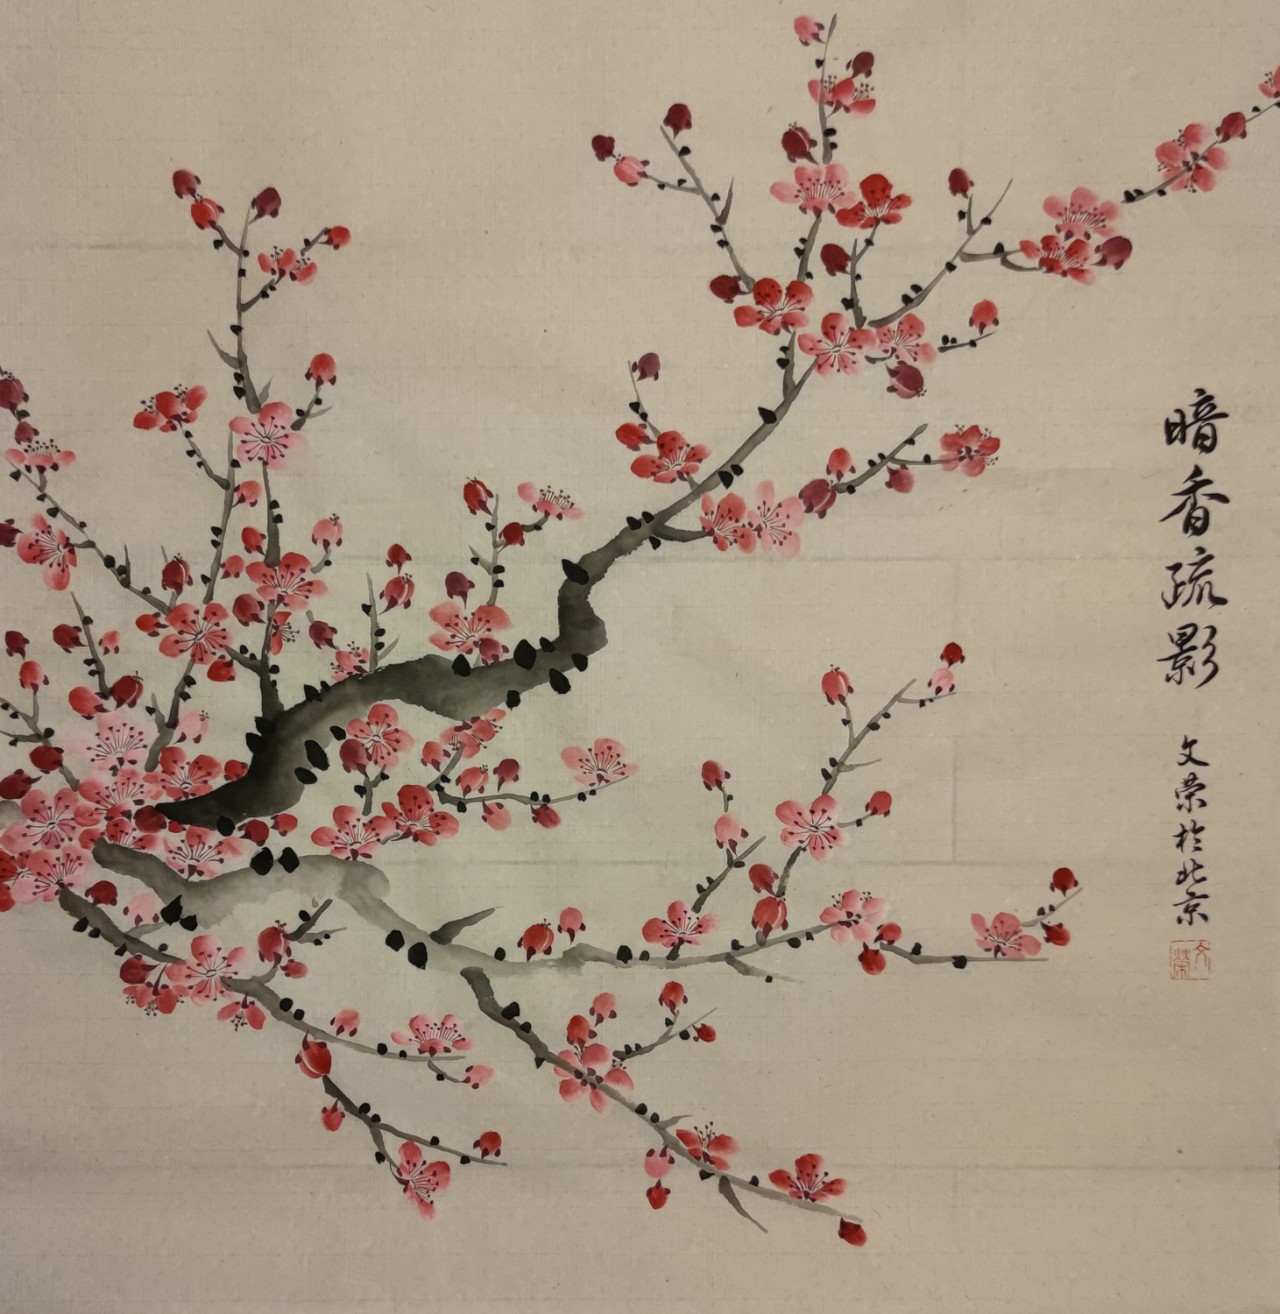 暗香疏影
文荣於北京
文荣